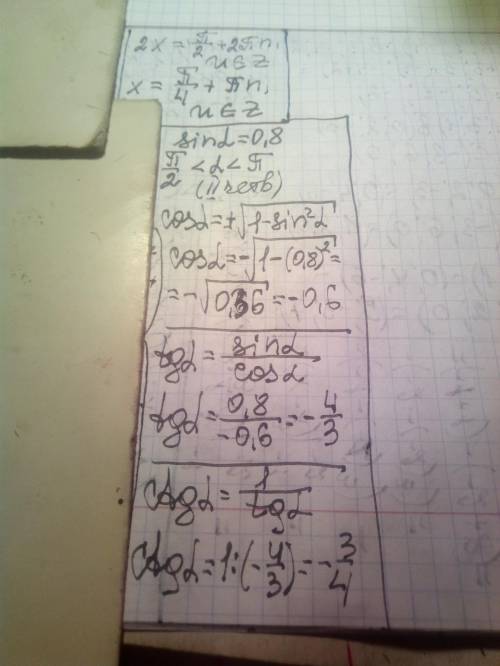 2x = π/2 + 2πn,
n ∈ Z
x = π/4 + πn,
n ∈ Z
sinα = 0,8
π/2 < α < π
(II четв)
cosα = ±√(1-sin²α)
cosα = -√(1-(0,8)²) =
= -√(0,36) = -0,6
tgα = sinα/cosα
tgα = 0,8/-0,6 = -4/3
ctgα = 1/tgα
ctgα = 1:(-4/3) = -3/4